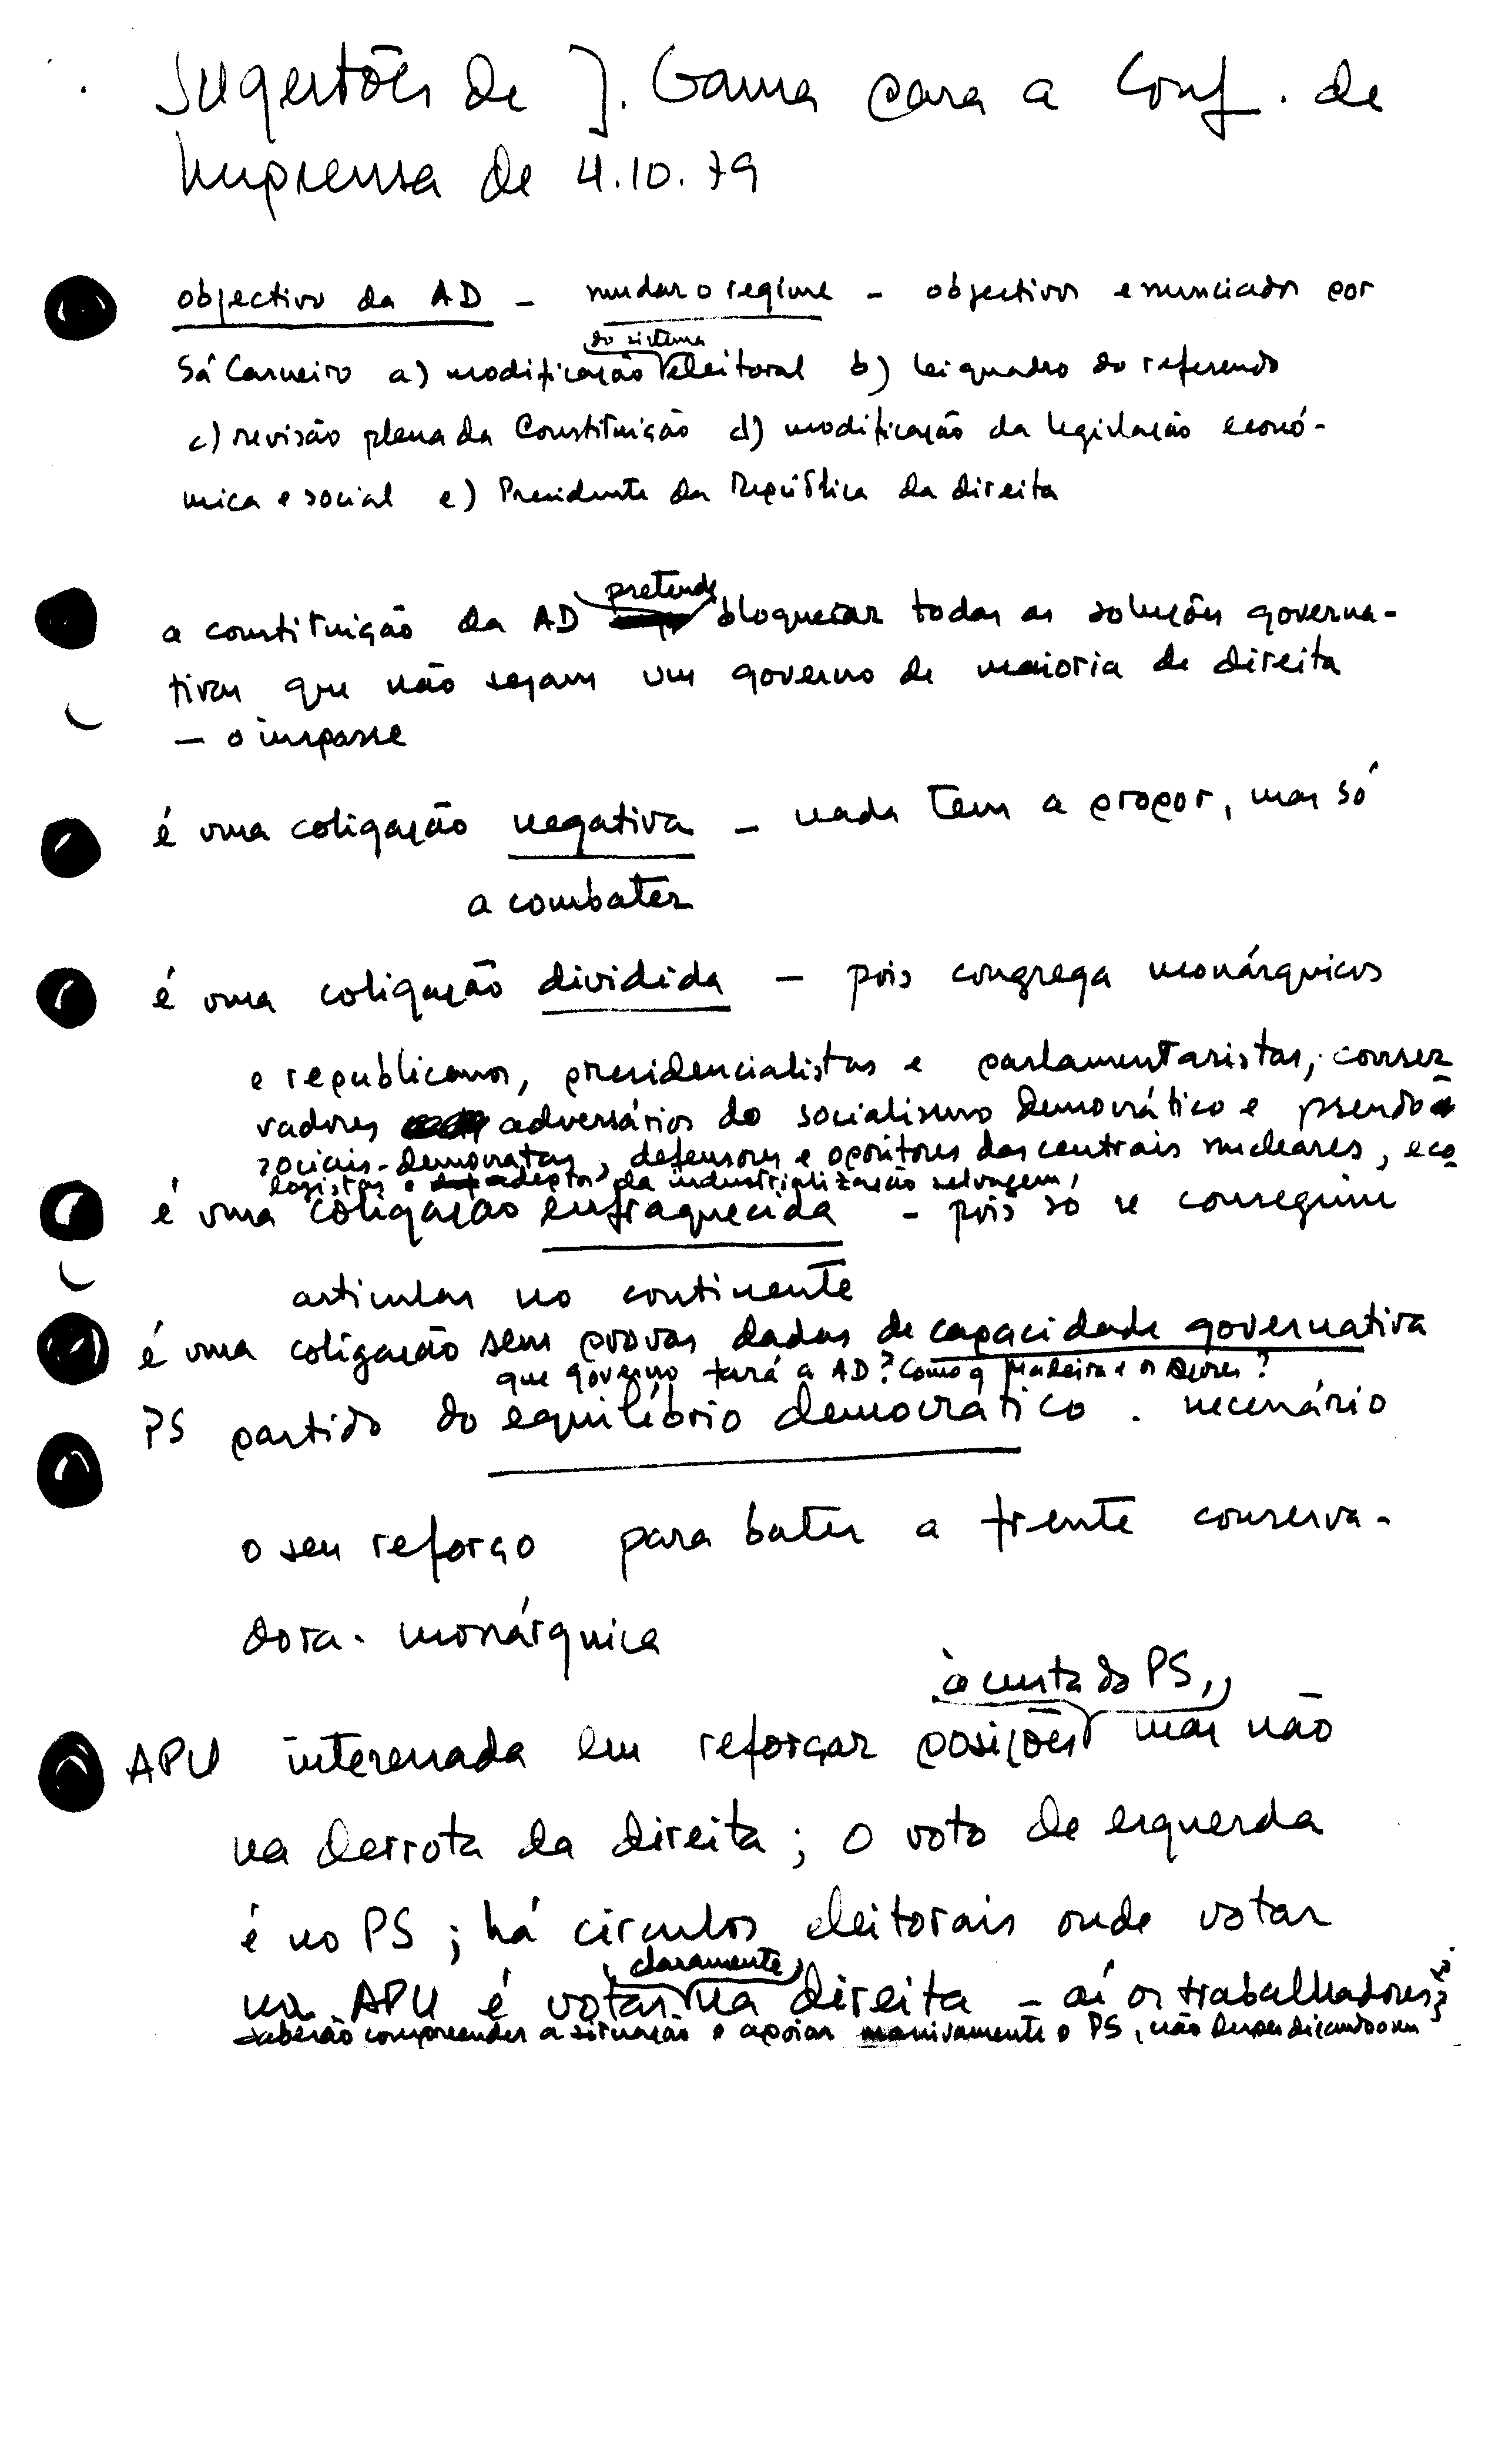 Sugestões de J. Gama para a Conf. de
Imprensa de 4.10.79
objectivo da AD - mudar o regime - objectivos enunciados por
do sistema
Sá Carneiro a) modificação eleitoral b) lei quadro do referendo
c) revisão plena da Constituição d) modificação da legislação econó-
mica e social e) Presidente da República da direita
pretende
a constituição da AD bloquear todas as soluções governa-
tivas que não sejam um governo de maioria de direita
- o impasse
é uma coligação negativa - nada tem a propor, mas só
a combater
é uma coligação dividida - pois congrega monárquicos
e republicanos, presidencialistas e parlamentaristas, conser
vadores adversários do socialismo democrático e pseudo
sociais-democratas, defensores e opositores das centrais nucleares, eco
logistas e adeptos da industrialização selvagem,
é uma coligação enfraquecida - pois só se conseguiu
articular no continente
é uma coligação sem provas dadas de capacidade governativa
que governo fará a AD? Como a Madeira e os Açores?
PS partido do equilíbrio democrático. necessário
o seu reforço para bater a frente conserva-
dora-monárquica
à custa do PS,
APU interessada em reforçar posições mas não
na derrota da direita; o voto de esquerda
é no PS; há círculos eleitorais onde votar
claramente
na APU é votar na direita - aí os trabalhadores
saberão compreender a situação e apoiar massivamente o PS, não desperdiçando o seu